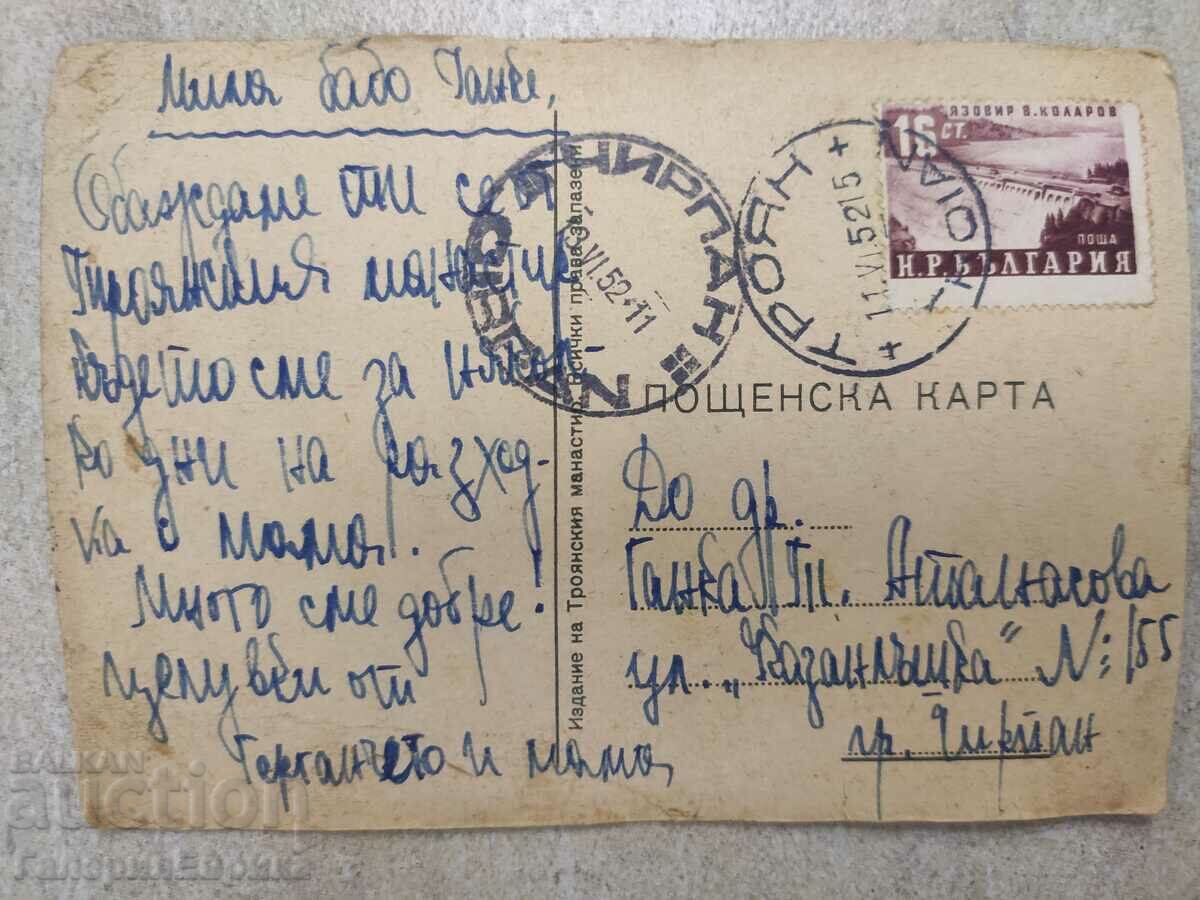 Мила бабо Ганке,
Обаждаме ти се от
Троянския манастир
където сме за някол-
ко дни на разход-
ка с мама.
Много сме добре!
целувки от
Гергачето и мама
Издание на Троянския манастир, всички права запазени
ЧИРПАН
VI.52-11
ТРОЯН
11.VI.5215
TROIAN
ЯЗОВИР В.КОЛАРОВ
16 СТ.
ПОЩА
Н.Р.БЪЛГАРИЯ
ПОЩЕНСКА КАРТА
До др.
Ганка Ат. Атанасова
ул. „Казанлъшка" №: 155
гр. Чирпан
BALKAN
auction
ГалерияЕфрика